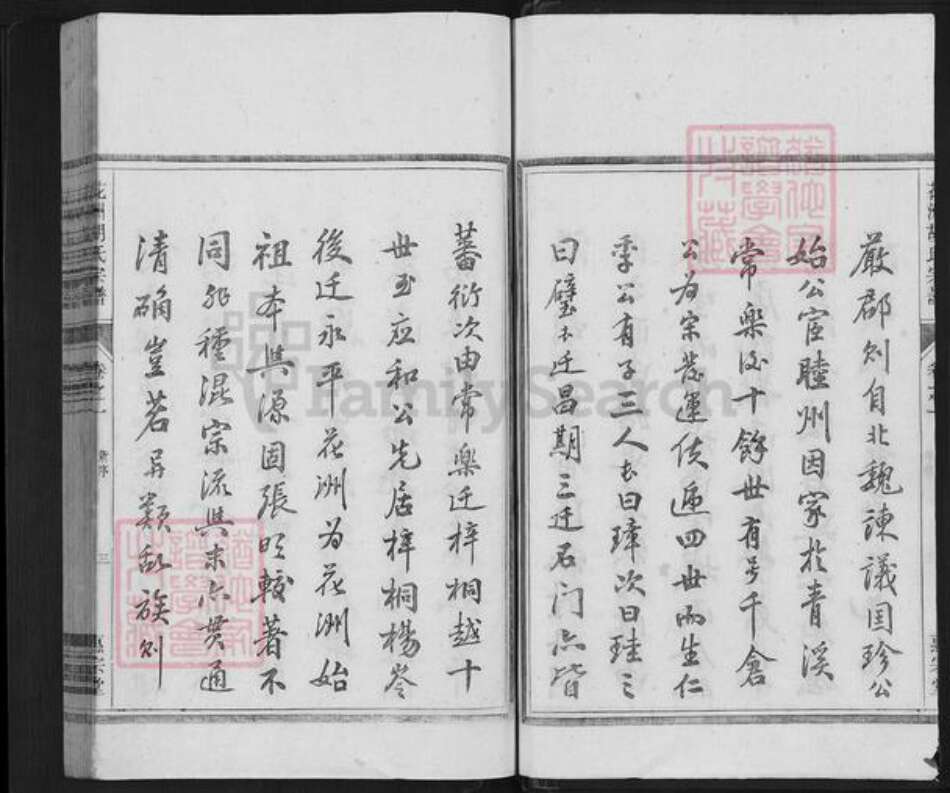 嚴郡則自北魏諫議国珍公
始公宦睦州因家於青溪
常樂後十餘世有号千倉
公为宗發運使遞四世而生仁
季公有子三人長曰璋次曰珪三
曰璧不迁昌期三迁石门亦皆
蕃衍次由常樂迁梓桐越十
世至应和公先居梓桐楊岺
後迁永平花洲为花洲始
祖本與源固張明較著不
同非種混宗流與末亦贯通
清确豈若异類乱族则
花洲胡氏宗譜
卷之一
三
惠宗堂
FamilySearch